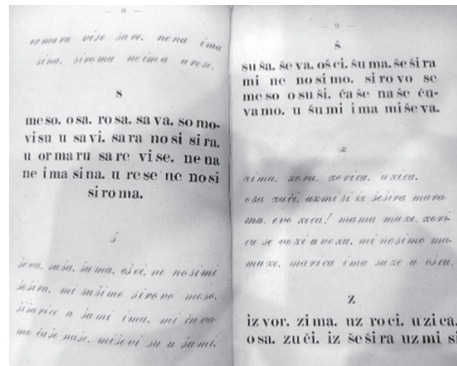 — 8 —
ormaru vise sare. nena ima
sina. siroma neima urese.
s
meso. osa. rosa. sava. somo-
vi su u savi. sara nosi sira.
u ormaru sare vise. nena
ne ima sina. u rese ne nosi
siroma.
š
ševa, suša, šuma. ošci. ne nosimi
šešira. mi sušimo sirovo meso.
šišarice u šumi ima. mi čuva-
mo čaše naše. miševi su u šumi.
— 9 —
š
suša. ševa. ošci. šuma. šešira
mi ne nosimo. sirovo se
meso osuši. čaše naše ču-
vamo. u šumi ima miševa.
z
zima, zora, zorica, uzica.
osa zuči. uzmi si iz šešira mara-
mu. evo zoca! mama maze. zori-
ca se vozi u vozu. mi nosimo ma-
maze. marica ima suze u ošcu.
z
izvor. zima. uz roci. uzica.
osa. zuči. iz šešira uzmi si